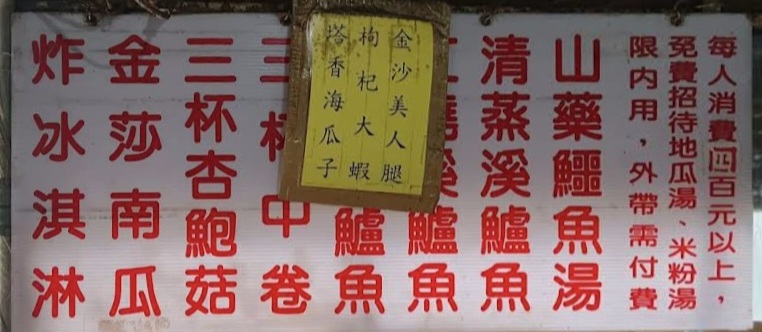 每人消費四百元以上，
免費招待地瓜湯、米粉湯
限內用，外帶需付費
山藥鱷魚湯
清蒸溪鱸魚
溪鱸魚
鱸魚
三杯中卷
三杯杏鮑菇
金莎南瓜
炸冰淇淋
金沙美人腿
枸杞大蝦
塔香海瓜子